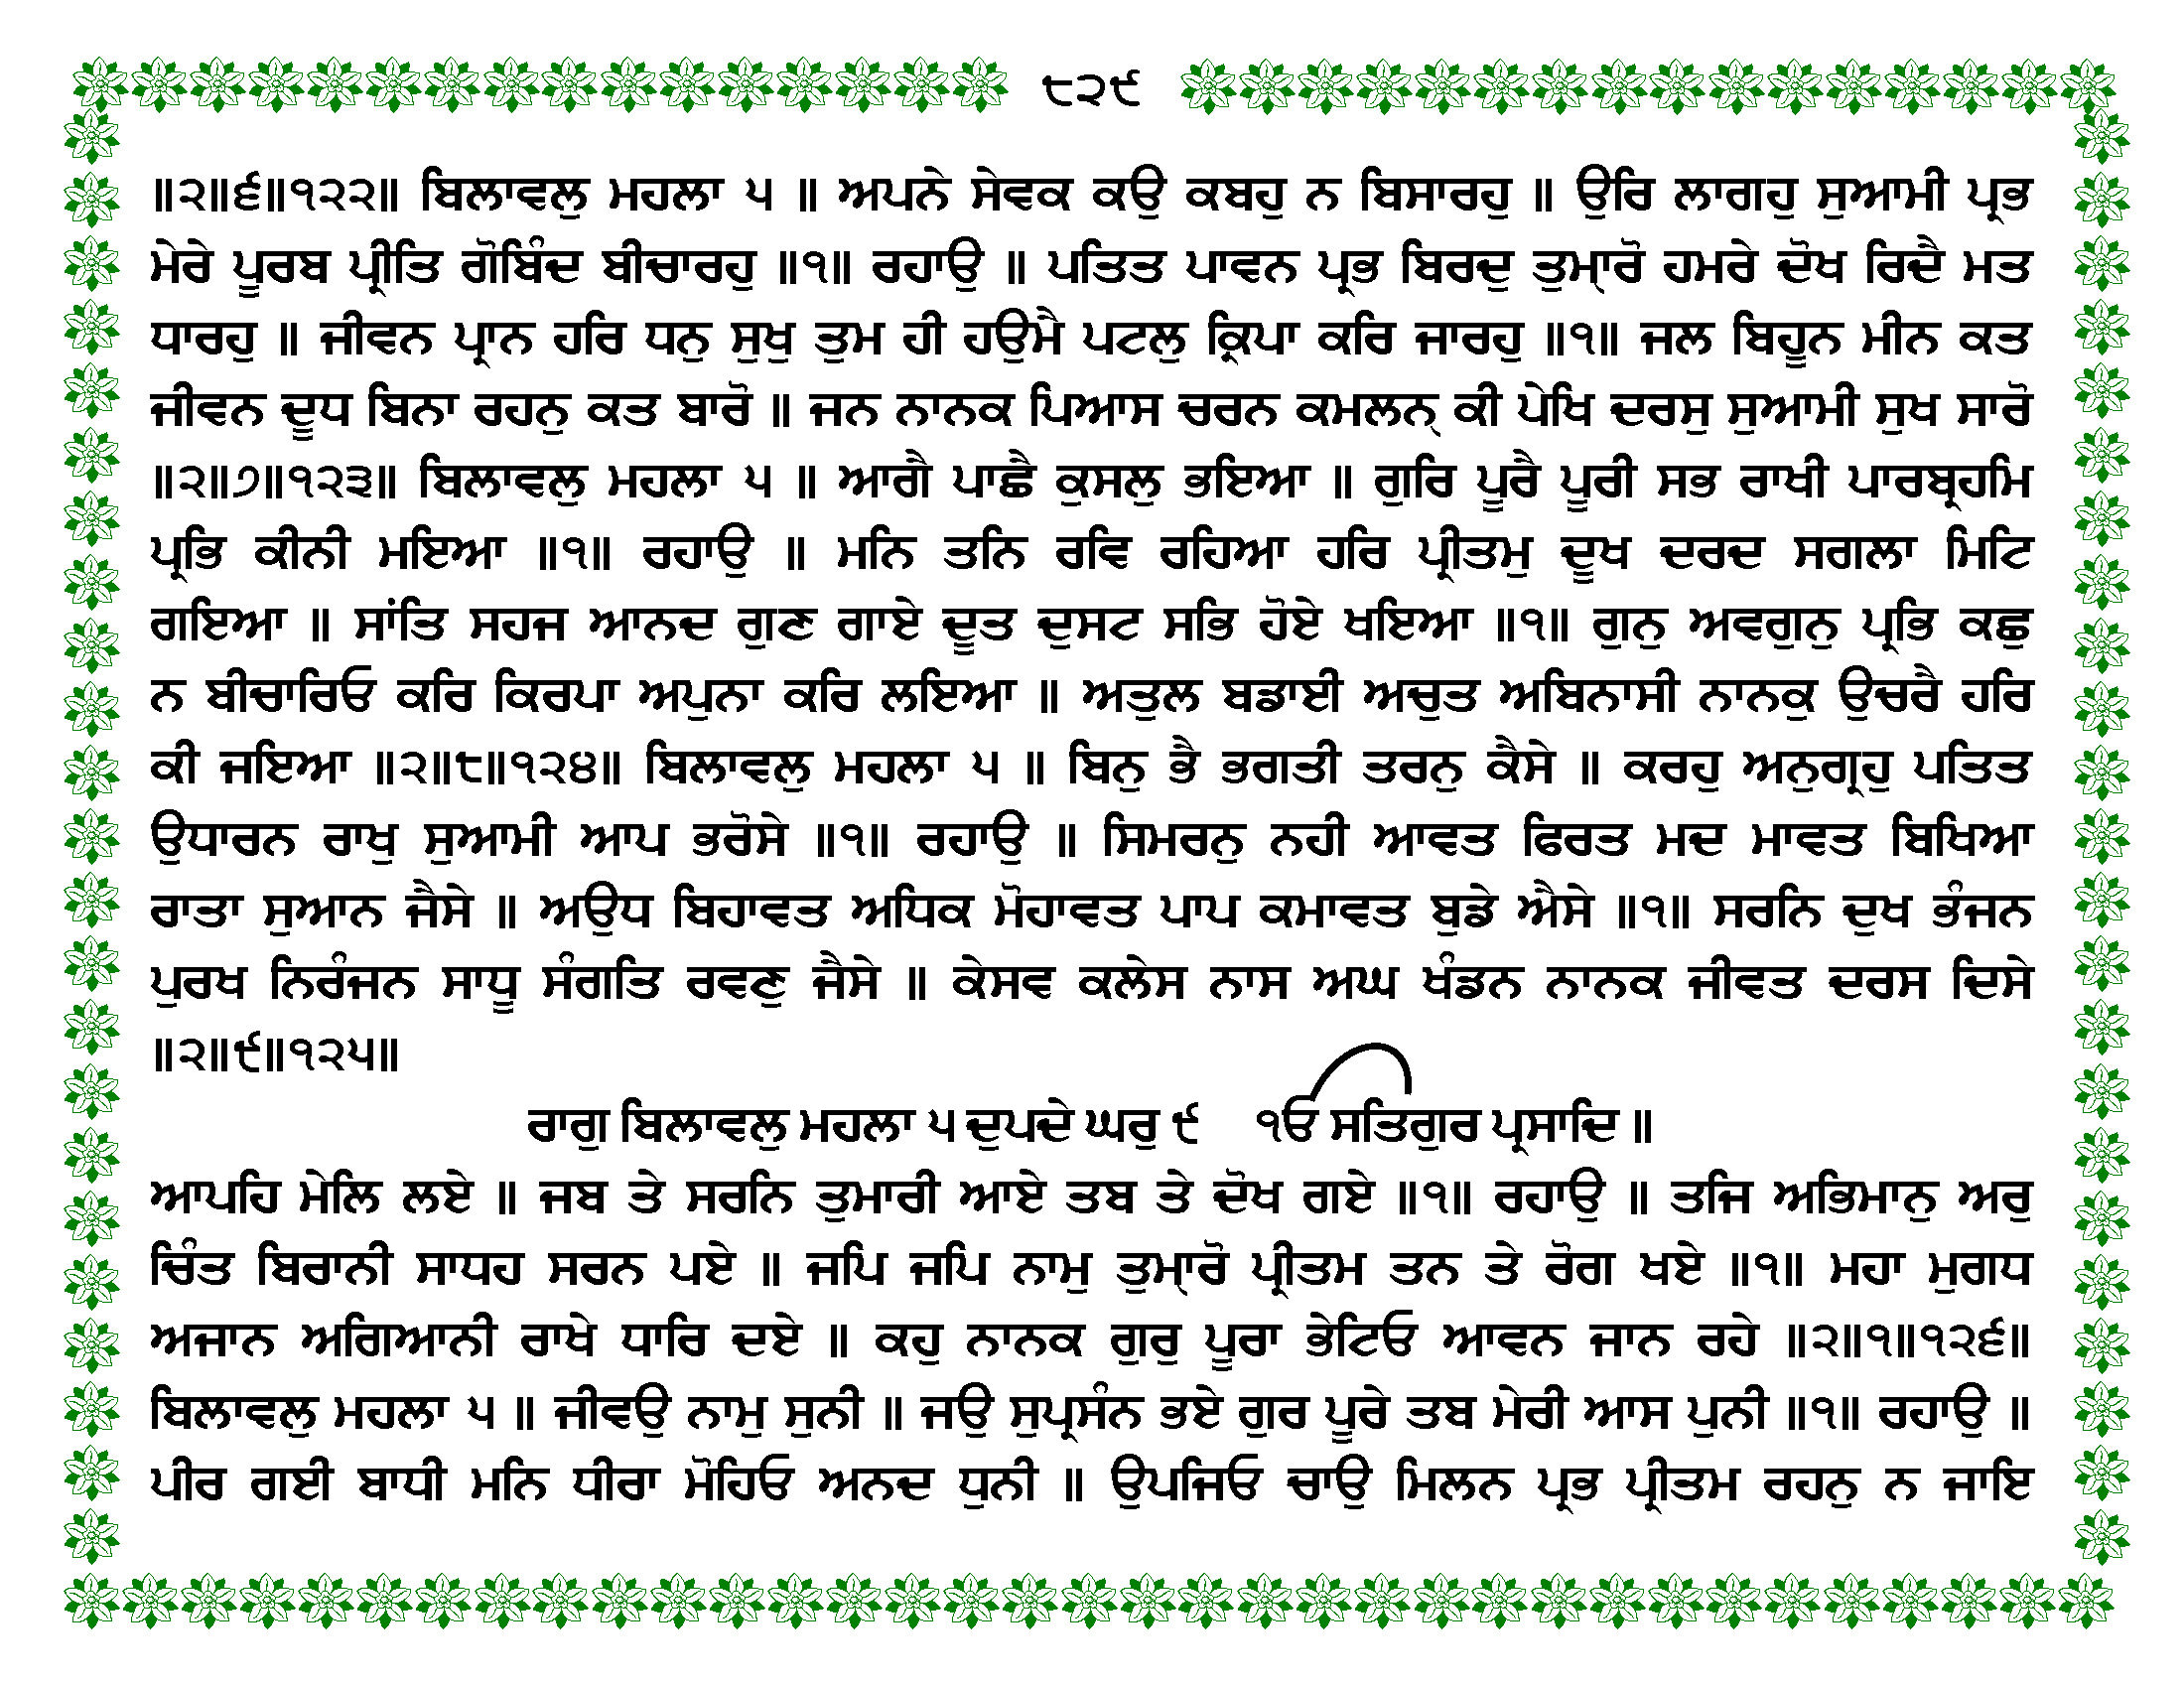 ੮੨੯
॥੨॥੬॥੧੨੨॥ ਬਿਲਾਵਲੁ ਮਹਲਾ ੫ ॥ ਅਪਨੇ ਸੇਵਕ ਕਉ ਕਬਹੁ ਨ ਬਿਸਾਰਹੁ ॥ ਉਰਿ ਲਾਗਹੁ ਸੁਆਮੀ ਪ੍ਰਭ
ਮੇਰੇ ਪੂਰਬ ਪ੍ਰੀਤਿ ਗੋਬਿੰਦ ਬੀਚਾਰਹੁ ॥੧॥ ਰਹਾਉ ॥ ਪਤਿਤ ਪਾਵਨ ਪ੍ਰਭ ਬਿਰਦੁ ਤੁਮ੍ਹਾਰੋ ਹਮਰੇ ਦੋਖ ਰਿਦੈ ਮਤ
ਧਾਰਹੁ ॥ ਜੀਵਨ ਪ੍ਰਾਨ ਹਰਿ ਧਨੁ ਸੁਖੁ ਤੁਮ ਹੀ ਹਉਮੈ ਪਟਲੁ ਕ੍ਰਿਪਾ ਕਰਿ ਜਾਰਹੁ ॥੧॥ ਜਲ ਬਿਹੂਨ ਮੀਨ ਕਤ
ਜੀਵਨ ਦੂਧ ਬਿਨਾ ਰਹਨੁ ਕਤ ਬਾਰੋ ॥ ਜਨ ਨਾਨਕ ਪਿਆਸ ਚਰਨ ਕਮਲਨ੍ਹ ਕੀ ਪੇਖਿ ਦਰਸੁ ਸੁਆਮੀ ਸੁਖ ਸਾਰੋ
॥੨॥੭॥੧੨੩॥ ਬਿਲਾਵਲੁ ਮਹਲਾ ੫ ॥ ਆਗੈ ਪਾਛੈ ਕੁਸਲੁ ਭਇਆ ॥ ਗੁਰਿ ਪੂਰੈ ਪੂਰੀ ਸਭ ਰਾਖੀ ਪਾਰਬ੍ਰਹਮਿ
ਪ੍ਰਭਿ ਕੀਨੀ ਮਇਆ ॥੧॥ ਰਹਾਉ ॥ ਮਨਿ ਤਨਿ ਰਵਿ ਰਹਿਆ ਹਰਿ ਪ੍ਰੀਤਮੁ ਦੂਖ ਦਰਦ ਸਗਲਾ ਮਿਟਿ
ਗਇਆ ॥ ਸਾਂਤਿ ਸਹਜ ਆਨਦ ਗੁਣ ਗਾਏ ਦੂਤ ਦੁਸਟ ਸਭਿ ਹੋਏ ਖਇਆ ॥੧॥ ਗੁਨੁ ਅਵਗੁਨੁ ਪ੍ਰਭਿ ਕਛੁ
ਨ ਬੀਚਾਰਿਓ ਕਰਿ ਕਿਰਪਾ ਅਪੁਨਾ ਕਰਿ ਲਇਆ ॥ ਅਤੁਲ ਬਡਾਈ ਅਚੁਤ ਅਬਿਨਾਸੀ ਨਾਨਕੁ ਉਚਰੈ ਹਰਿ
ਕੀ ਜਇਆ ॥੨॥੮॥੧੨੪॥ ਬਿਲਾਵਲੁ ਮਹਲਾ ੫ ॥ ਬਿਨੁ ਭੈ ਭਗਤੀ ਤਰਨੁ ਕੈਸੇ ॥ ਕਰਹੁ ਅਨੁਗ੍ਰਹੁ ਪਤਿਤ
ਉਧਾਰਨ ਰਾਖੁ ਸੁਆਮੀ ਆਪ ਭਰੋਸੇ ॥੧॥ ਰਹਾਉ ॥ ਸਿਮਰਨੁ ਨਹੀ ਆਵਤ ਫਿਰਤ ਮਦ ਮਾਵਤ ਬਿਖਿਆ
ਰਾਤਾ ਸੁਆਨ ਜੈਸੇ ॥ ਅਉਧ ਬਿਹਾਵਤ ਅਧਿਕ ਮੋਹਾਵਤ ਪਾਪ ਕਮਾਵਤ ਬੁਡੇ ਐਸੇ ॥੧॥ ਸਰਨਿ ਦੁਖ ਭੰਜਨ
ਪੁਰਖ ਨਿਰੰਜਨ ਸਾਧੂ ਸੰਗਤਿ ਰਵਣੁ ਜੈਸੇ ॥ ਕੇਸਵ ਕਲੇਸ ਨਾਸ ਅਘ ਖੰਡਨ ਨਾਨਕ ਜੀਵਤ ਦਰਸ ਦਿਸੇ
॥੨॥੯॥੧੨੫॥
ਰਾਗੁ ਬਿਲਾਵਲੁ ਮਹਲਾ ੫ ਦੁਪਦੇ ਘਰੁ ੯ ੴ ਸਤਿਗੁਰ ਪ੍ਰਸਾਦਿ ॥
ਆਪਹਿ ਮੇਲਿ ਲਏ ॥ ਜਬ ਤੇ ਸਰਨਿ ਤੁਮਾਰੀ ਆਏ ਤਬ ਤੇ ਦੋਖ ਗਏ ॥੧॥ ਰਹਾਉ ॥ ਤਜਿ ਅਭਿਮਾਨੁ ਅਰੁ
ਚਿੰਤ ਬਿਰਾਨੀ ਸਾਧਹ ਸਰਨ ਪਏ ॥ ਜਪਿ ਜਪਿ ਨਾਮੁ ਤੁਮ੍ਹਾਰੋ ਪ੍ਰੀਤਮ ਤਨ ਤੇ ਰੋਗ ਖਏ ॥੧॥ ਮਹਾ ਮੁਗਧ
ਅਜਾਨ ਅਗਿਆਨੀ ਰਾਖੇ ਧਾਰਿ ਦਏ ॥ ਕਹੁ ਨਾਨਕ ਗੁਰੁ ਪੂਰਾ ਭੇਟਿਓ ਆਵਨ ਜਾਨ ਰਹੇ ॥੨॥੧॥੧੨੬॥
ਬਿਲਾਵਲੁ ਮਹਲਾ ੫ ॥ ਜੀਵਉ ਨਾਮੁ ਸੁਨੀ ॥ ਜਉ ਸੁਪ੍ਰਸੰਨ ਭਏ ਗੁਰ ਪੂਰੇ ਤਬ ਮੇਰੀ ਆਸ ਪੁਨੀ ॥੧॥ ਰਹਾਉ ॥
ਪੀਰ ਗਈ ਬਾਧੀ ਮਨਿ ਧੀਰਾ ਮੋਹਿਓ ਅਨਦ ਧੁਨੀ ॥ ਉਪਜਿਓ ਚਾਉ ਮਿਲਨ ਪ੍ਰਭ ਪ੍ਰੀਤਮ ਰਹਨੁ ਨ ਜਾਇ